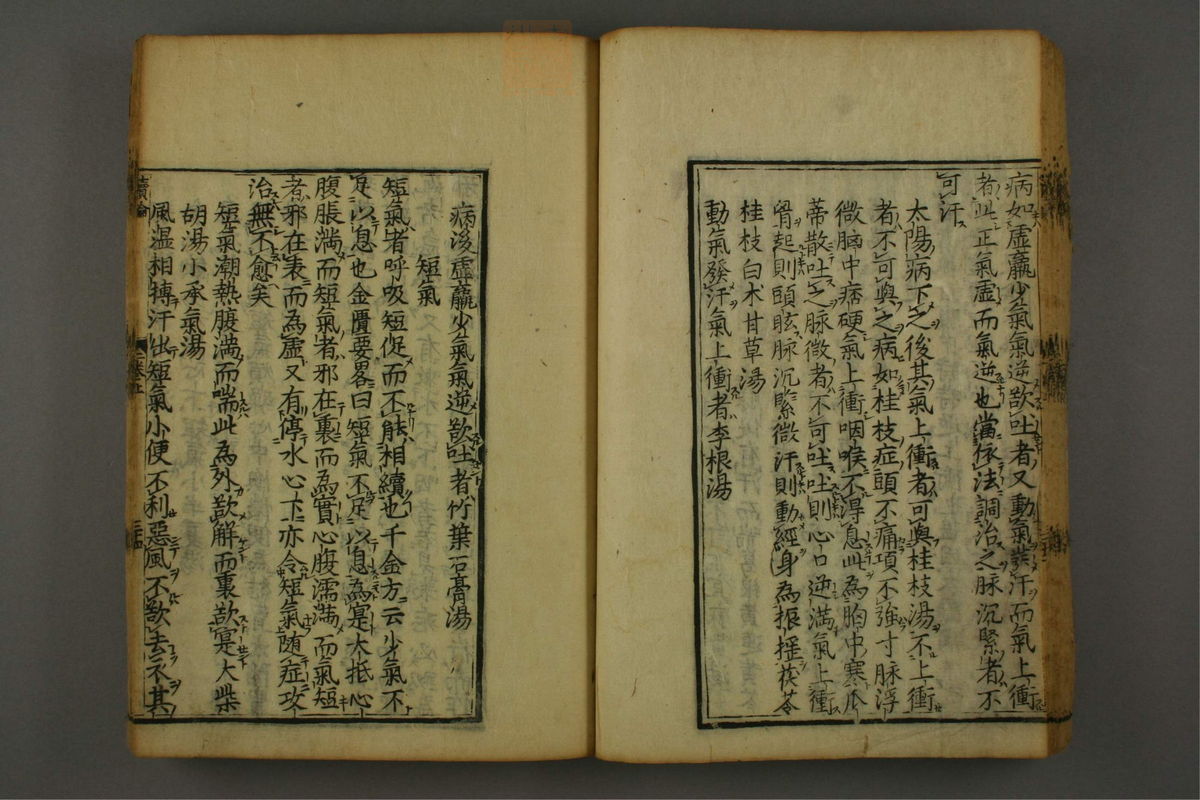 病如虛羸少氣氣逆欲吐者又動氣発汗而氣上衝
者此正氣虛而氣逆也當依法調治之脉沉緊者不
可汗
太陽病下之後其氣上衝者可與桂枝湯不上衝
者不可與之病如桂枝症頭不痛項不強寸脉浮
微胸中痞硬氣上衝咽喉不得息此為胸中寒瓜
蒂散吐之脉微者不可吐吐則心逆滿氣上衝
胷起則頭眩脉沉緊微汗則動經身為振揺茯苓
桂枝白朮甘草湯
動氣發汗氣上衝者李根湯
病後虛羸少氣氣逆欲吐者竹葉石膏湯
短氣
短氣者呼吸短促而不能相續也千金方云少氣不
足以息也金匱要畧曰短氣不足以息為實大抵心
腹脹滿而短氣者邪在裏而為實心腹濡滿而氣短
者邪在表而為虛又有停水心下亦令短氣随症攻
治無不愈矣
短氣潮熱腹滿而喘此為外欲解而裏欲實大柴
胡湯小承氣湯
風湿相摶汗出短氣小便不利惡風不欲去衣其